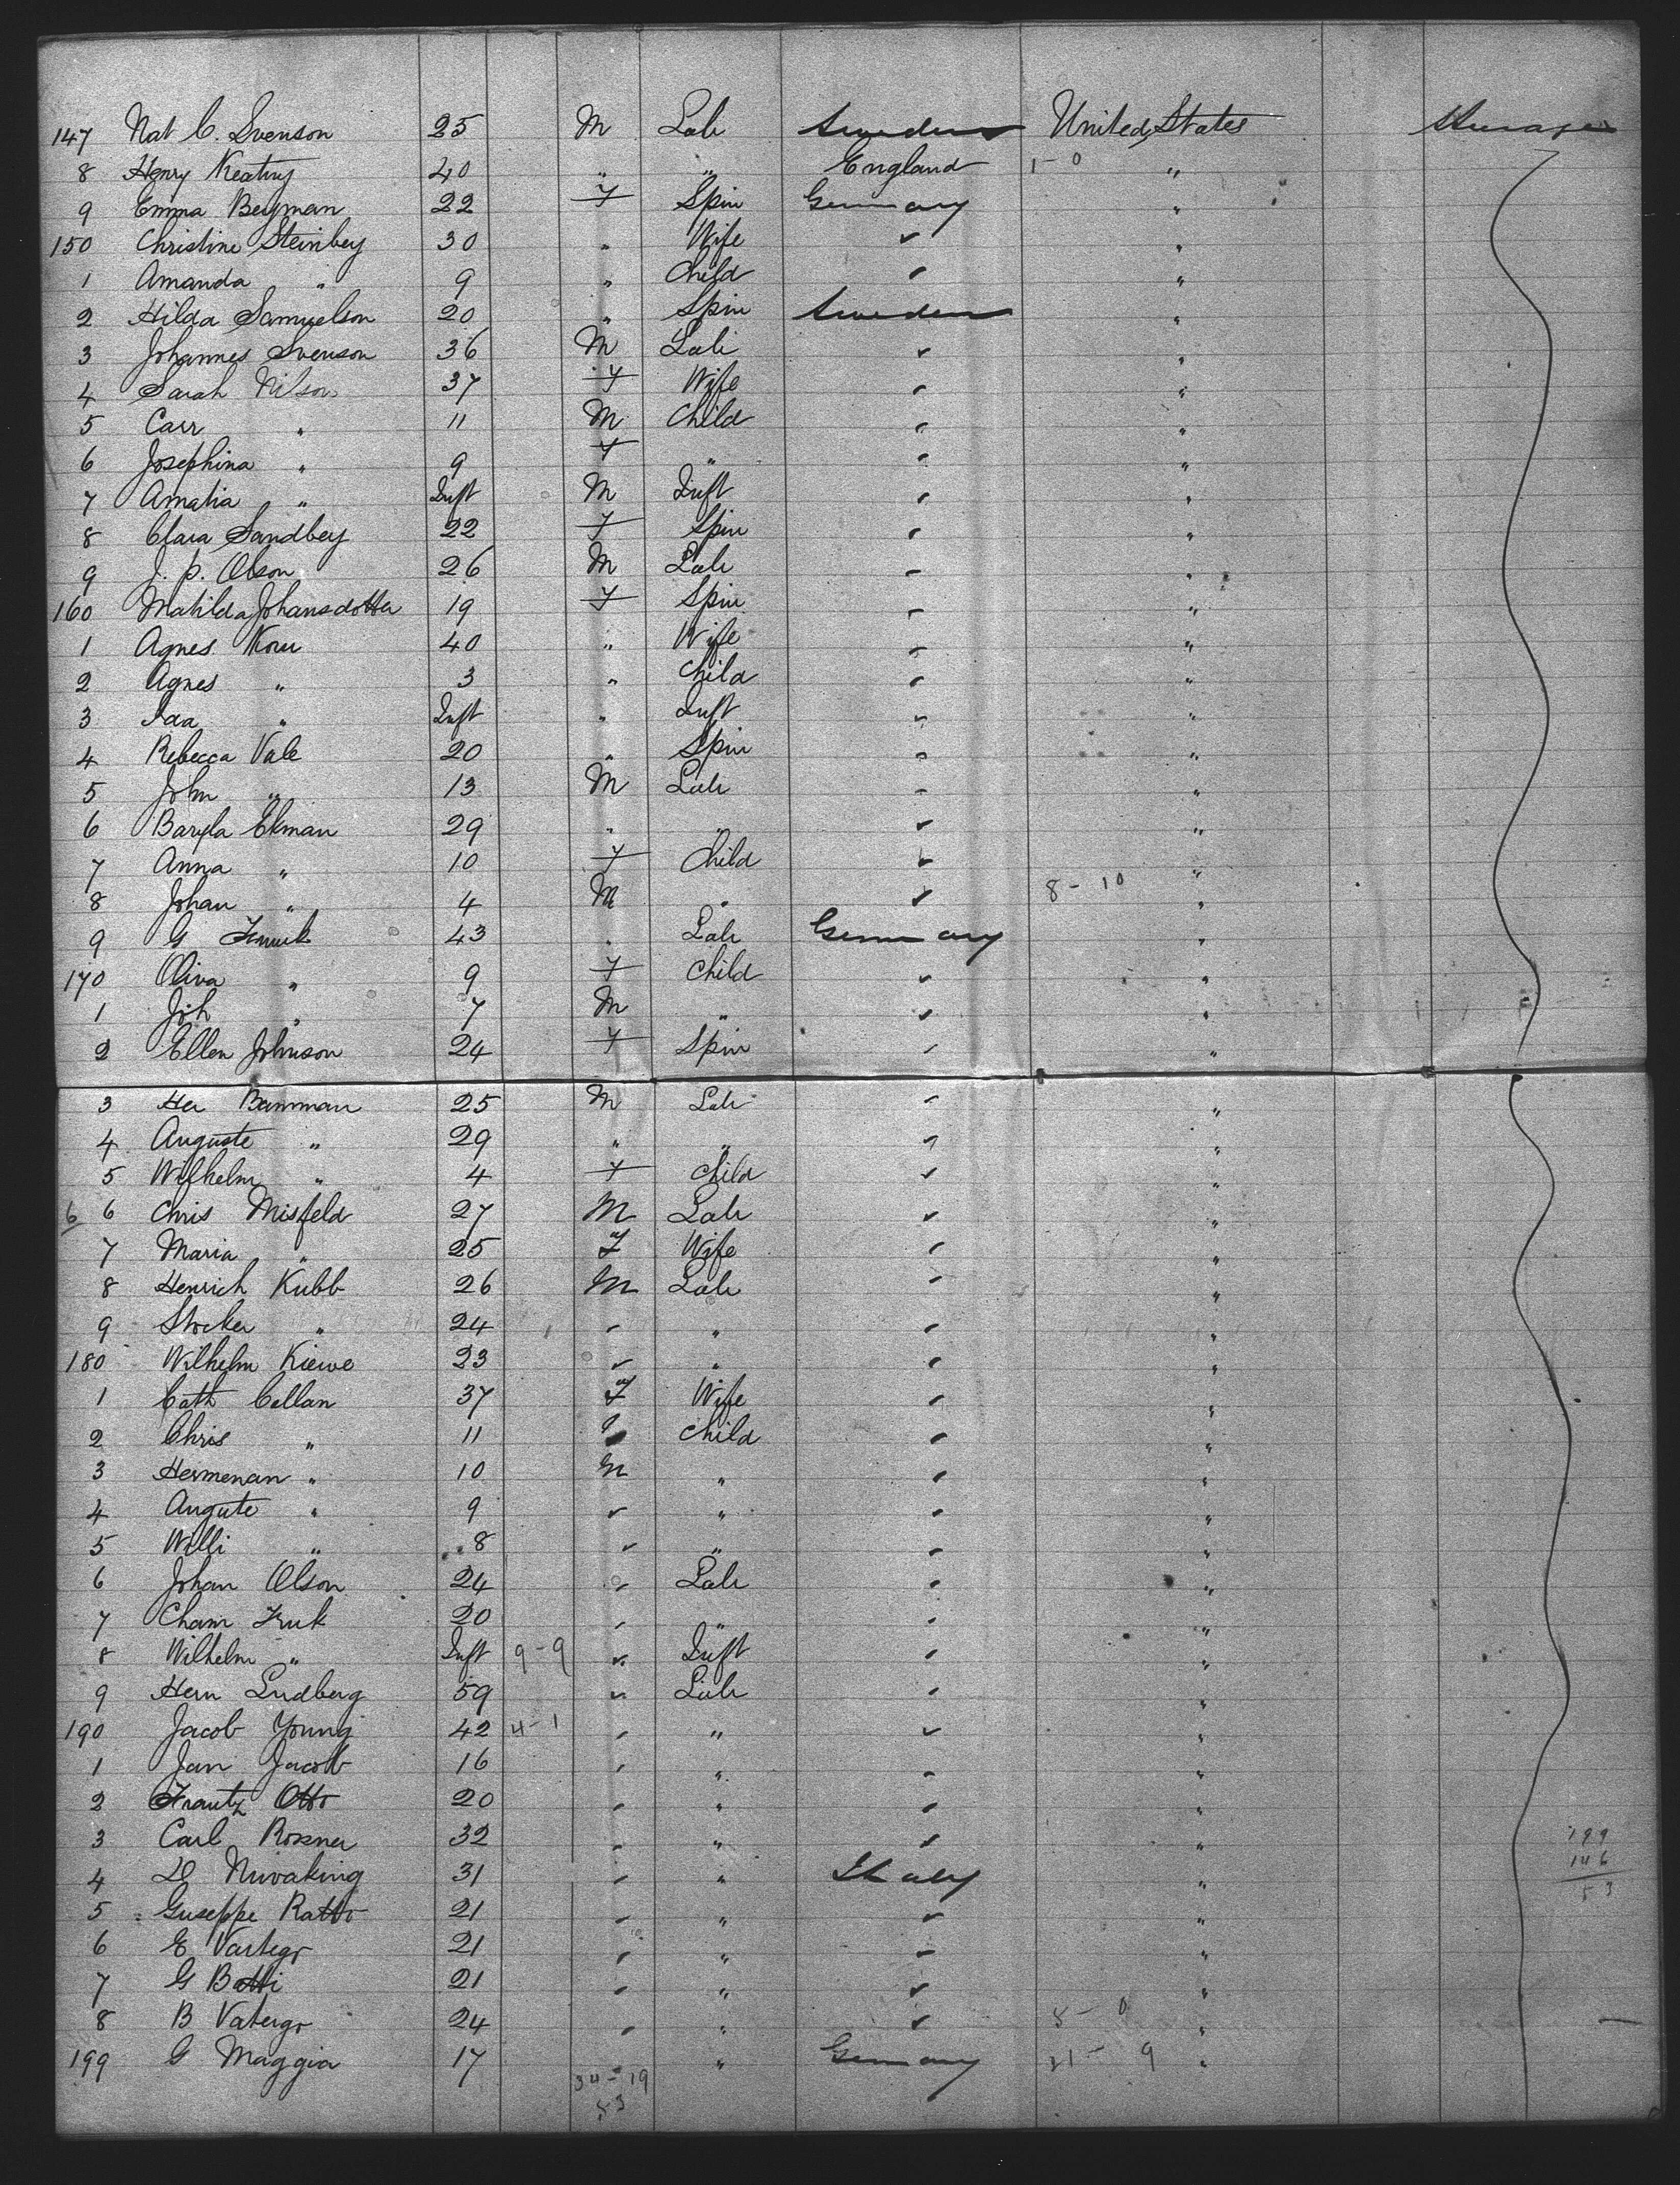 147 Nat C. Svenson 25 M Lab Sweden United States Steerage
8 Henry Keating 40 " " England 1-0 "
9 Emma Bergman 22 F Spin Germany "
150 Christine Steinberg 30 " Wife " "
1 Amanda " 9 " Child " "
2 Hilda Samuelson 20 " Spin Sweden "
3 Johannes Svenson 36 M Lab " "
4 Sarah Nilson 37 F Wife " "
5 Carr " 11 M Child " "
6 Josephina " 9 F " " "
7 Amalia " Inft M Inft " "
8 Clara Sandberg 22 F Spin " "
9 J. P. Olson 26 M Lab " "
160 Matilda Johansdotter 19 F Spin " "
1 Agnes 40 " Wife " "
2 Agnes " 3 " Child " "
3 Ida " Inft " Inft " "
4 Rebecca Vale 20 " Spin " "
5 John " 13 M Lab " "
6 Ekman 29 " " " "
7 Anna " 10 F Child " "
8 Johan " 4 M " " 8-10 "
9 G 43 " Lab Germany "
170 Oliva " 9 F Child " "
1 Joh " 7 M " " "
2 Ellen Johnson 24 F Spin " "
3 Her Bammann 25 M Lab " "
4 Auguste " 29 " " " "
5 Wilhelm " 4 F Child " "
6 6 Chris Misfeld 27 M Lab " "
7 Maria " 25 F Wife " "
8 Henrich Kubb 26 M Lab " "
9 Stocker " 24 " " " "
180 Wilhelm Kiewe 23 " " " "
1 Cath Collan 37 F Wife " "
2 Chris " 11 Child " "
3 Hermenan " 10 M " " "
4 Augute " 9 " " " "
5 Willi " 8 " " " "
6 Johan Olson 24 " Lab " "
7 Cham Fruk 20 " " " "
8 Wilhelm " Inft 9-9 " Inft " "
9 Hern Lindberg 59 " Lab " "
190 Jacob Young 42 4-1 " " " "
1 Jan Jacob 16 " " " "
2 Frantz Otto 20 " " " "
3 Carl Rosner 32 " " " " 199
4 D Nuvaking 31 " " Italy " 146
5 Guseppe Ratto 21 " " " " 53
6 E Vartego 21 " " " "
7 G Botti 21 " " " "
8 B Vatergo 24 " " " 8-0 "
199 G Maggia 17 " Germany 21-9 "
34-19
53